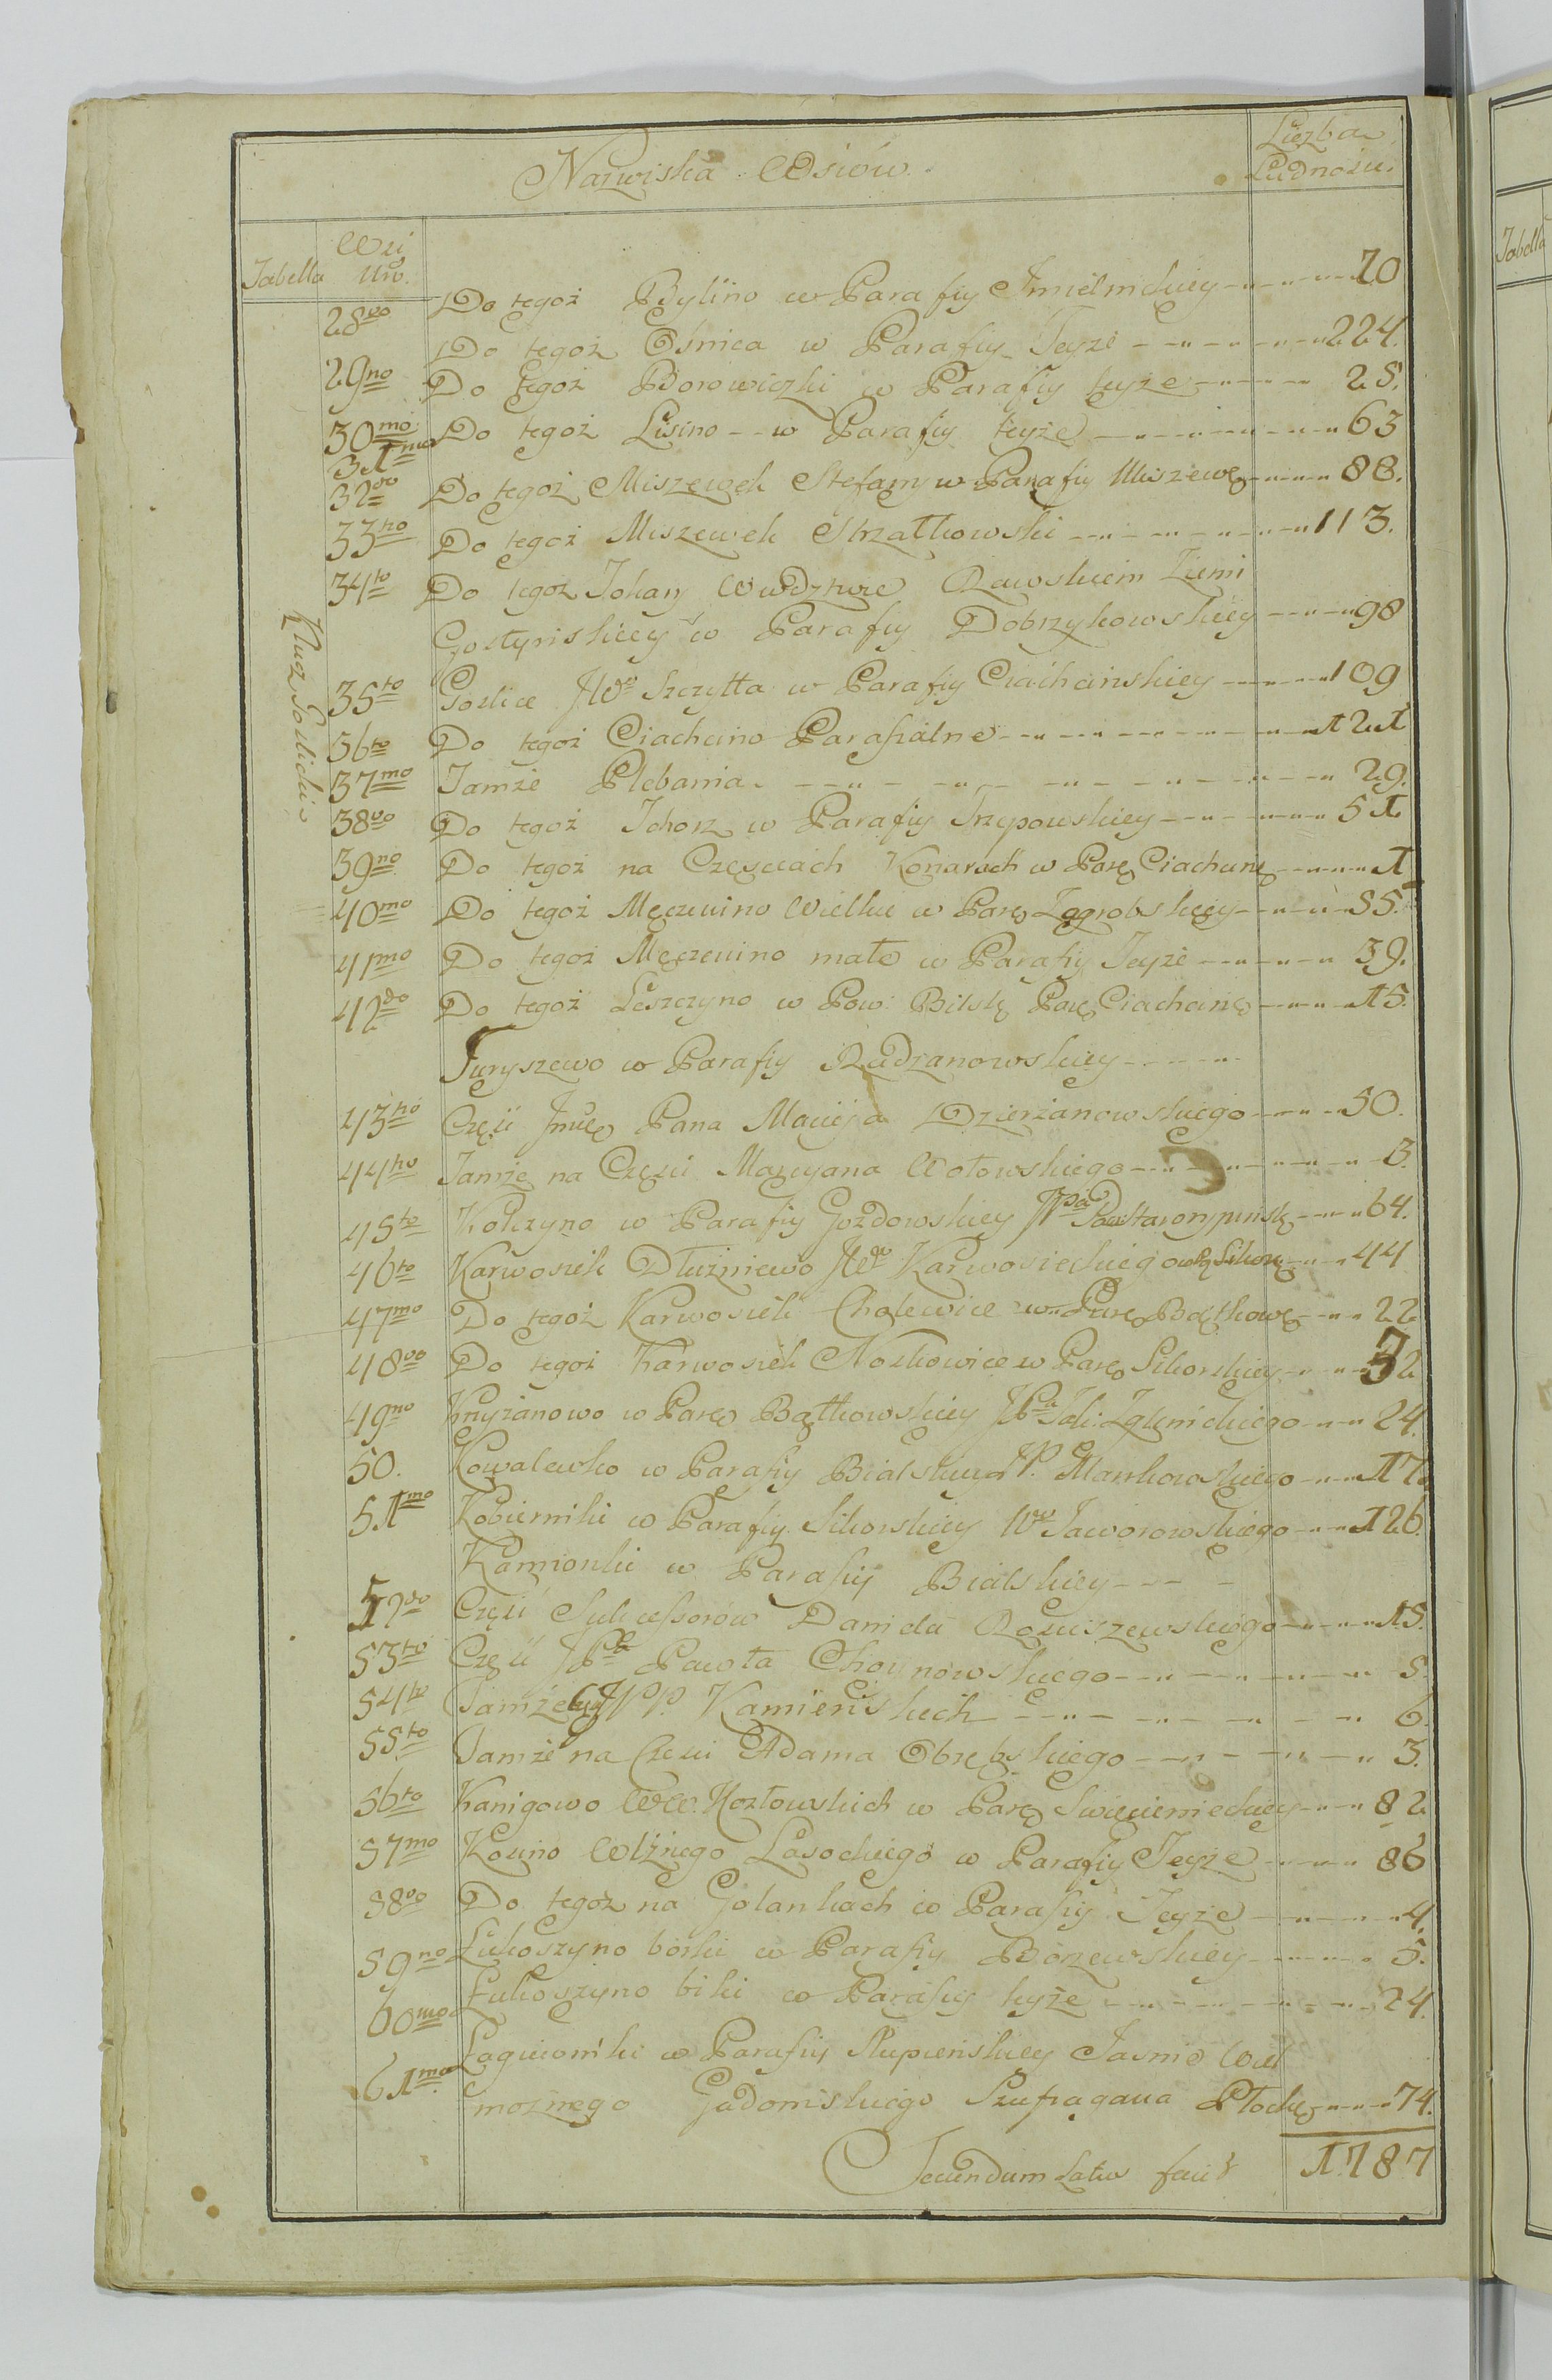 Nazwiska Wsiów.
Liczba
Ludności.
Tabella
Wsi
Nro.
28vo Do tegoż Bylino w Parafiy Imielnickiey 70
29no Do tegoż Ośnica w Parafiy Teyże 224.
30mo Do tegoż Borowiczki w Parafiy teyże 25.
31mo Do tegoż Lisino w Parafiy teyże 63
32do Do tegoż Miszewek Stefany w Parafiy Miszewę 88.
33tio Do tegoż Miszewek Strzałkowski 113.
34to Do tegoż Tokary w Wdztwie Rawskiem Ziemi
Gostyńskiey w Parafiy Dobrzykowskiey 98
Klucz Goślicki
35to Goslice JWo Szczytta w Parafiy Ciachcińskiey 109
36to Do tegoż Ciachcino Parafialne 121
37mo Tamże Plebania 29.
38vo Do tegoż Tchorz w Parafiy Trzepowskiey 51
39no Do tegoż na Częsciach Koniarach w Parę Ciachcinę 1
40mo Do tegoż Męczenino Wielkie w Parę Zagrobskiey 55.
41mo Do tegoż Męczenino małe w Parafiy Teyże 39.
42do Do tegoż Leszczyno w Pow: Bilskę Parę Ciachcinę 15.
Turyszewo w Parafiy Radzanowskiey
43tio Część Jmcę Pana Macieja Dzierżanowskiego 50.
44to Tamże na Części Marcyana Wotowskiego 3.
45to Kolczyno w Parafiy Gozdowskiey 64.
46to Karwosiek Dłużniewo JWo Karwosieckiego 44
47mo Do tegoż Karwosiek Cholewice w Parę Bądkowę 22
48vo Do tegoż Karwosiek Noskowice w Parę Sikorskiey 32
49no Krzyżanowo w Parę Bądkowskiey Zglenickiego 24.
50. Kowalewko w Parafiy Bialskiey JP. Mankowskiego 17
51mo Kobierniki w Parafiy Sikorskiey Wo Jaworowskiego 126.
Kamionki w Parafiy Bialskiey
52do Część Sukcessorów Daniela Rosciszewskiego 15.
53tio Część JPa Pawła Choynowskiego 5.
54to Tamże JPP. Kamieńskich 6.
55to Tamże na Części Adama Obrębskiego 3.
56to Kanigowo WW. Kozłowskich w Parę Swięcienieckiey 82
57mo Kosino Wlżnego Lasockiego w Parafiy Teyże 86
58vo Do tegoż na Golankach w Parafiy Teyże 4.
59no Łukoszyno borki w Parafiy Borzewskiey 5.
60mo Łukoszyno biki w Parafiy teyże 24.
61mo Łagiewniki w Parafiy Słupieńskiey Jasnie Wiel
możnego Gadomskiego Szufragana Płockę 74.
Secundum Latus facit 1787